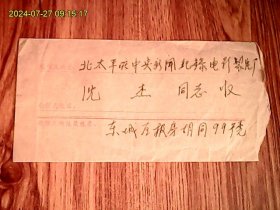 2024-07-27 09:15:17
北太平庄中央新闻纪录电影制片厂
沈 杰 同志 收
东城方报房胡同99号